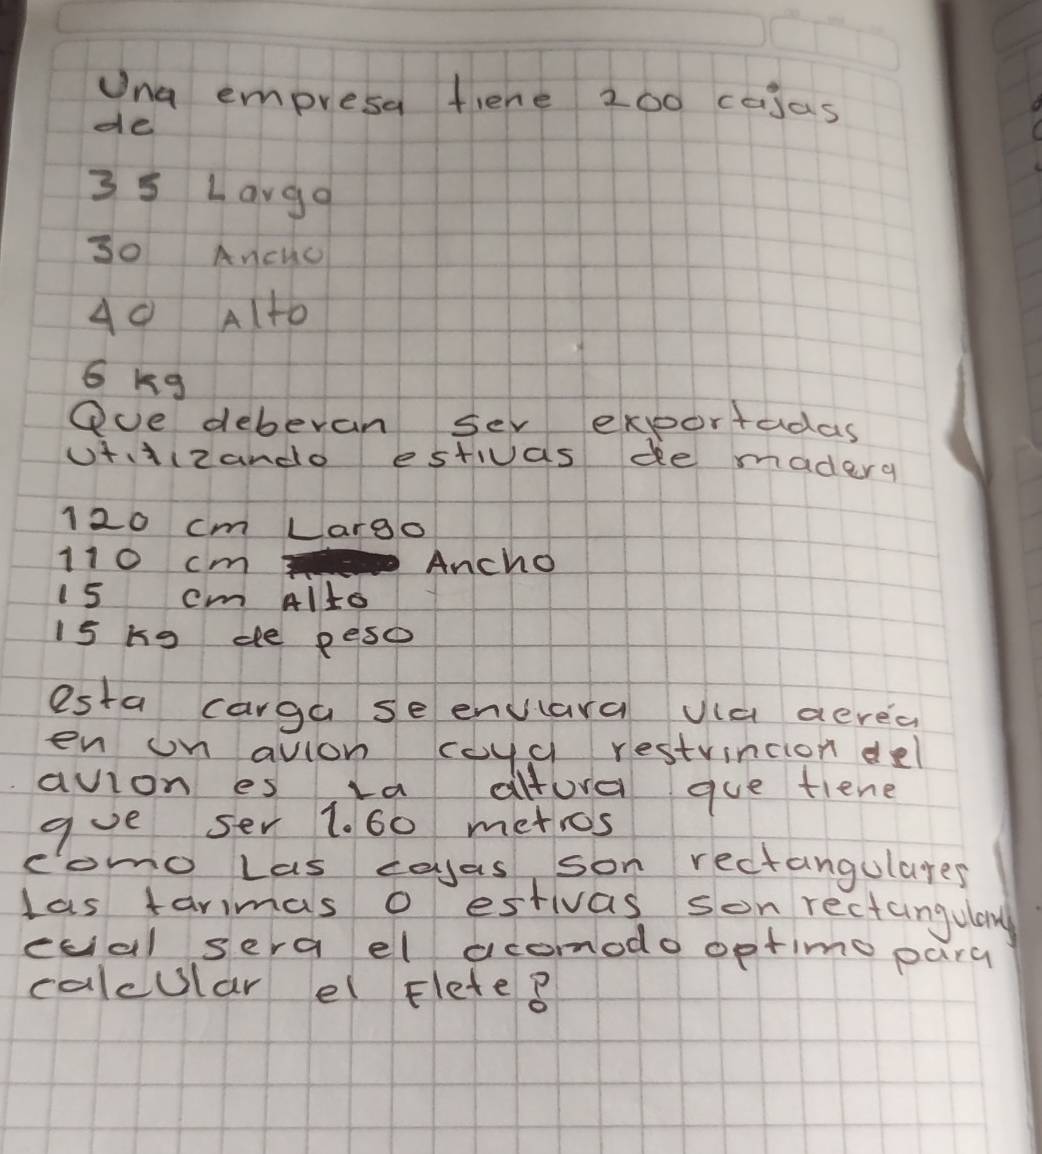 Una empresa tiene 200 cajas
de
35 Largo
30 Ancho
40 Alto
6 kg
Que deberan ser exportadas
utilizando estivas de madera
120 cm Largo
110 cm Ancho
15 cm Alto
15 kg de peso
esta carga se enviara via aerea
en un avion cuya restrincion del
avion es la altura que tiene
que ser 1.60 metros
como Las cajas son rectangulares
Las tarimas o estivas son rectangulares
cual sera el acomodo optimo para
calcular el Flete?